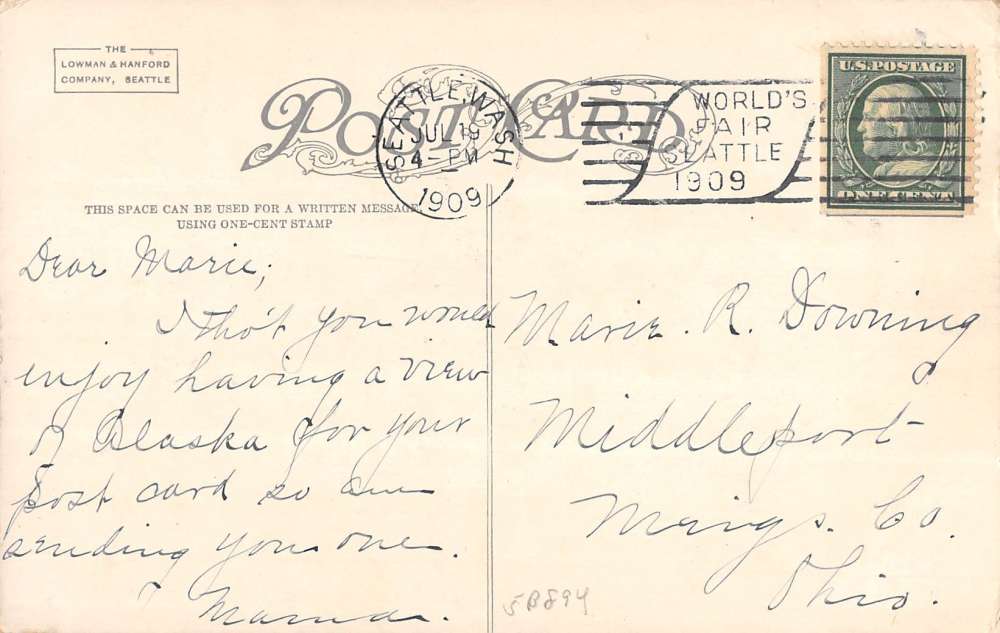 THE
LOWMAN & HANFORD
COMPANY, SEATTLE
POST CARD
SEATTLE, WASH
JUL 19
4 - PM
1909
WORLD'S
FAIR
SEATTLE
1909
U.S. POSTAGE
ONE CENT
THIS SPACE CAN BE USED FOR A WRITTEN MESSAGE,
USING ONE-CENT STAMP
Dear Marie;
I tho't you would
enjoy having a view
of Alaska for your
post card so am
sending you one.
Mama.
Marie. R. Downing
Middleport
Meigs. Co.
Ohio.
5B894